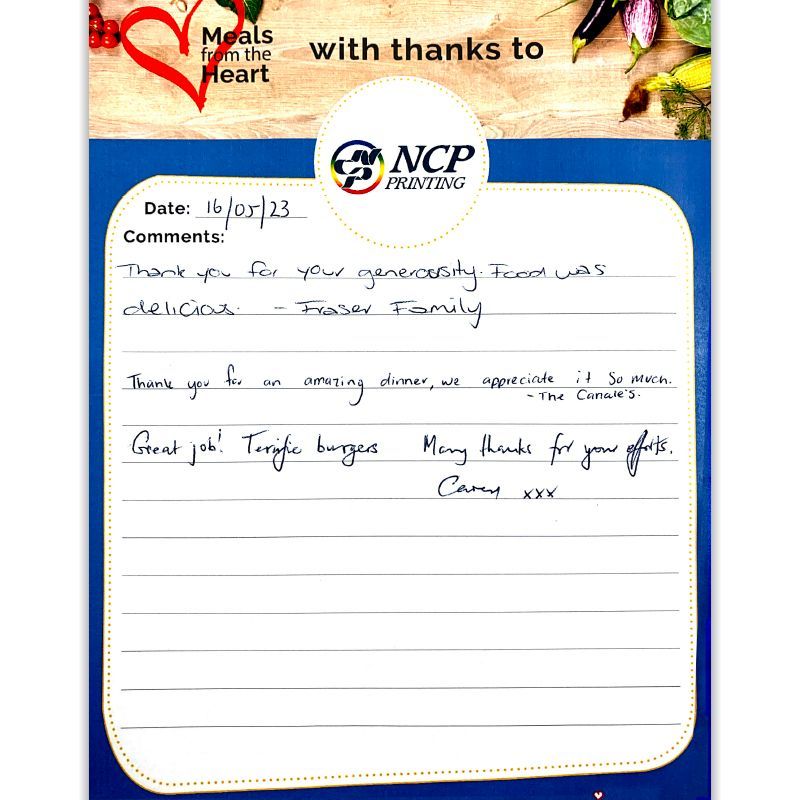 Meals
from the
Heart
with thanks to
NCP
PRINTING
Date: 16/05/23
Comments:
Thank you for your generousity. Food was
delicious. - Fraser Family
Thank you for an amazing dinner, we appreciate it so much.
- The Canale's.
Great job! Terrific burgers Many thanks for your efforts.
xxx